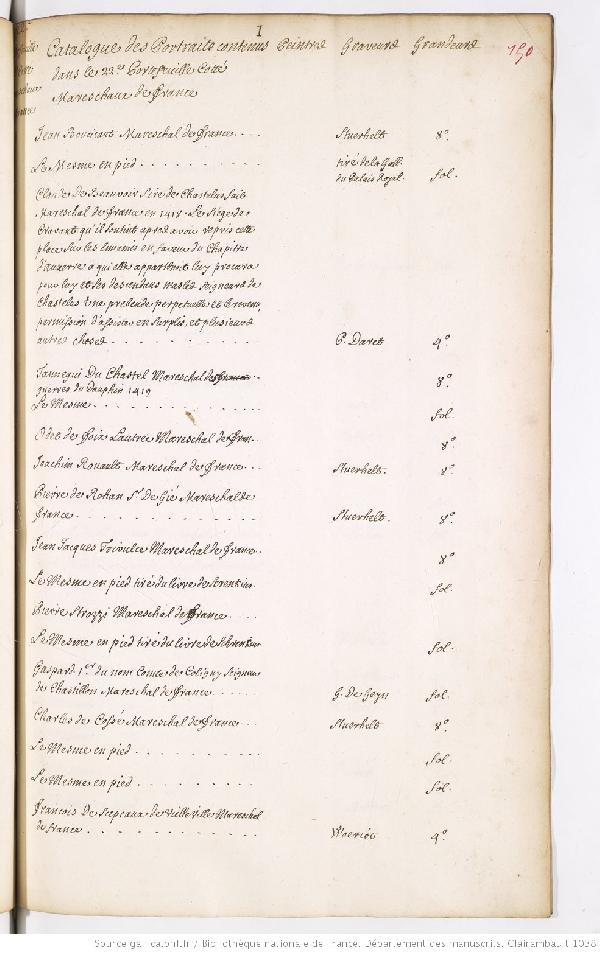 1
Catalogue des Portraits contenus Peintres Graveurs Grandeurs 150
dans le 22.e Portefeuille Cotté
Mareschaux de France
Jean Boucicaut Mareschal de france . . . . Stuerhelt 8.o
Le Mesme en pied . . . . . . . . tiré de la Gall. du Palais Royal. fol.
Claude de Beauvoir Sire de Chastelus fait
Mareschal de france en 1418. Le Siege de
Cravant qu'il soutint apres avoir repris cette
place sur les Ennemis en faveur du Chapitre
d'auxerre a qui elle appartient luy procura
pour luy et ses descendans masles Seigneurs de
Chastelus Une prebende perpetuelle et hereditre
permission d'assister en Surplis, et plusieurs
autres choses . . . . . . . . . P. Daret 4.o
Tannegui Du Chastel Mareschal des
guerres du Dauphin 1419 8.o
Le Mesme . . . . . . . . . . fol.
Odet de foix Lautrec Mareschal de fran. . 8.o
Joachim Rouault Mareschal de france . . Stuerhelt. 8.o
Pierre de Rohan Sr. De Gié Mareschal de
france . . . . . . . . . . Stuerhelt. 8.o
Jean Jacques Trivulce Mareschal de france . . 8.o
Le Mesme en pied tiré du livre de Schrenkius. fol.
Pierre Strozzi Mareschal de france . . . .
Le Mesme en pied tiré du livre de Schrenkius fol.
Gaspard 1.er du nom Comte de Coligny Seigneur
de Chastillon Mareschal de france . . . . G. De Geyn fol.
Charles de Cossé Mareschal de france . . . Stuerhelt 8.o
Le Mesme en pied . . . . . . . . fol.
Le Mesme en pied . . . . . . . . fol.
francois De Scepeaux de Vieilleville Mareschal
de france . . . . . . . . . . Woeriot 4.o
Source gallica.bnf.fr / Bibliothèque nationale de France. Département des manuscrits. Clairambault 1038